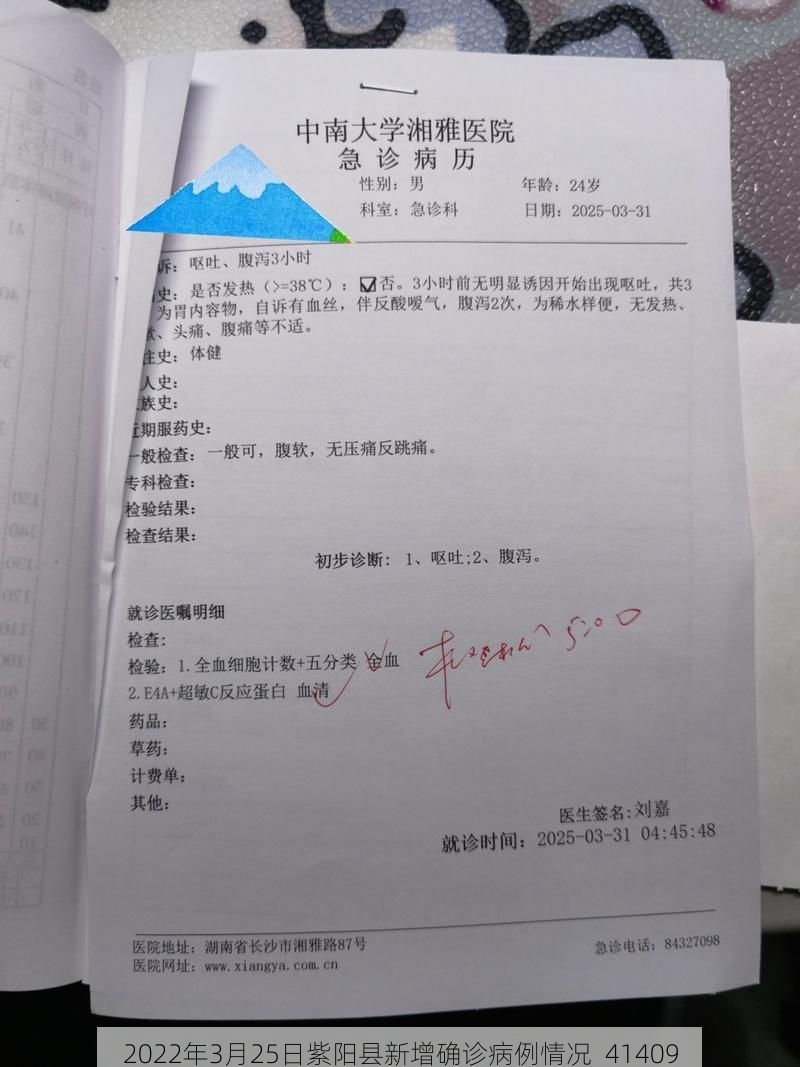 中南大学湘雅医院
急 诊 病 历
性别：男 年龄：24岁
科室：急诊科 日期：2025-03-31
诉：呕吐、腹泻3小时
史：是否发热（>=38℃）：☑否。3小时前无明显诱因开始出现呕吐，共3
为胃内容物，自诉有血丝，伴反酸嗳气，腹泻2次，为稀水样便，无发热、
、头痛、腹痛等不适。
往史：体健
人史：
族史：
近期服药史：
一般检查：一般可，腹软，无压痛反跳痛。
专科检查：
检验结果：
检查结果：
初步诊断：1、呕吐;2、腹泻。
就诊医嘱明细
检查：
检验：1.全血细胞计数+五分类 全血
2.E4A+超敏C反应蛋白 血清
5:00
药品：
草药：
计费单：
其他：
医生签名:刘嘉
就诊时间：2025-03-31 04:45:48
医院地址：湖南省长沙市湘雅路87号 急诊电话：84327098
医院网址：www.xiangya.com.cn
2022年3月25日紫阳县新增确诊病例情况 41409